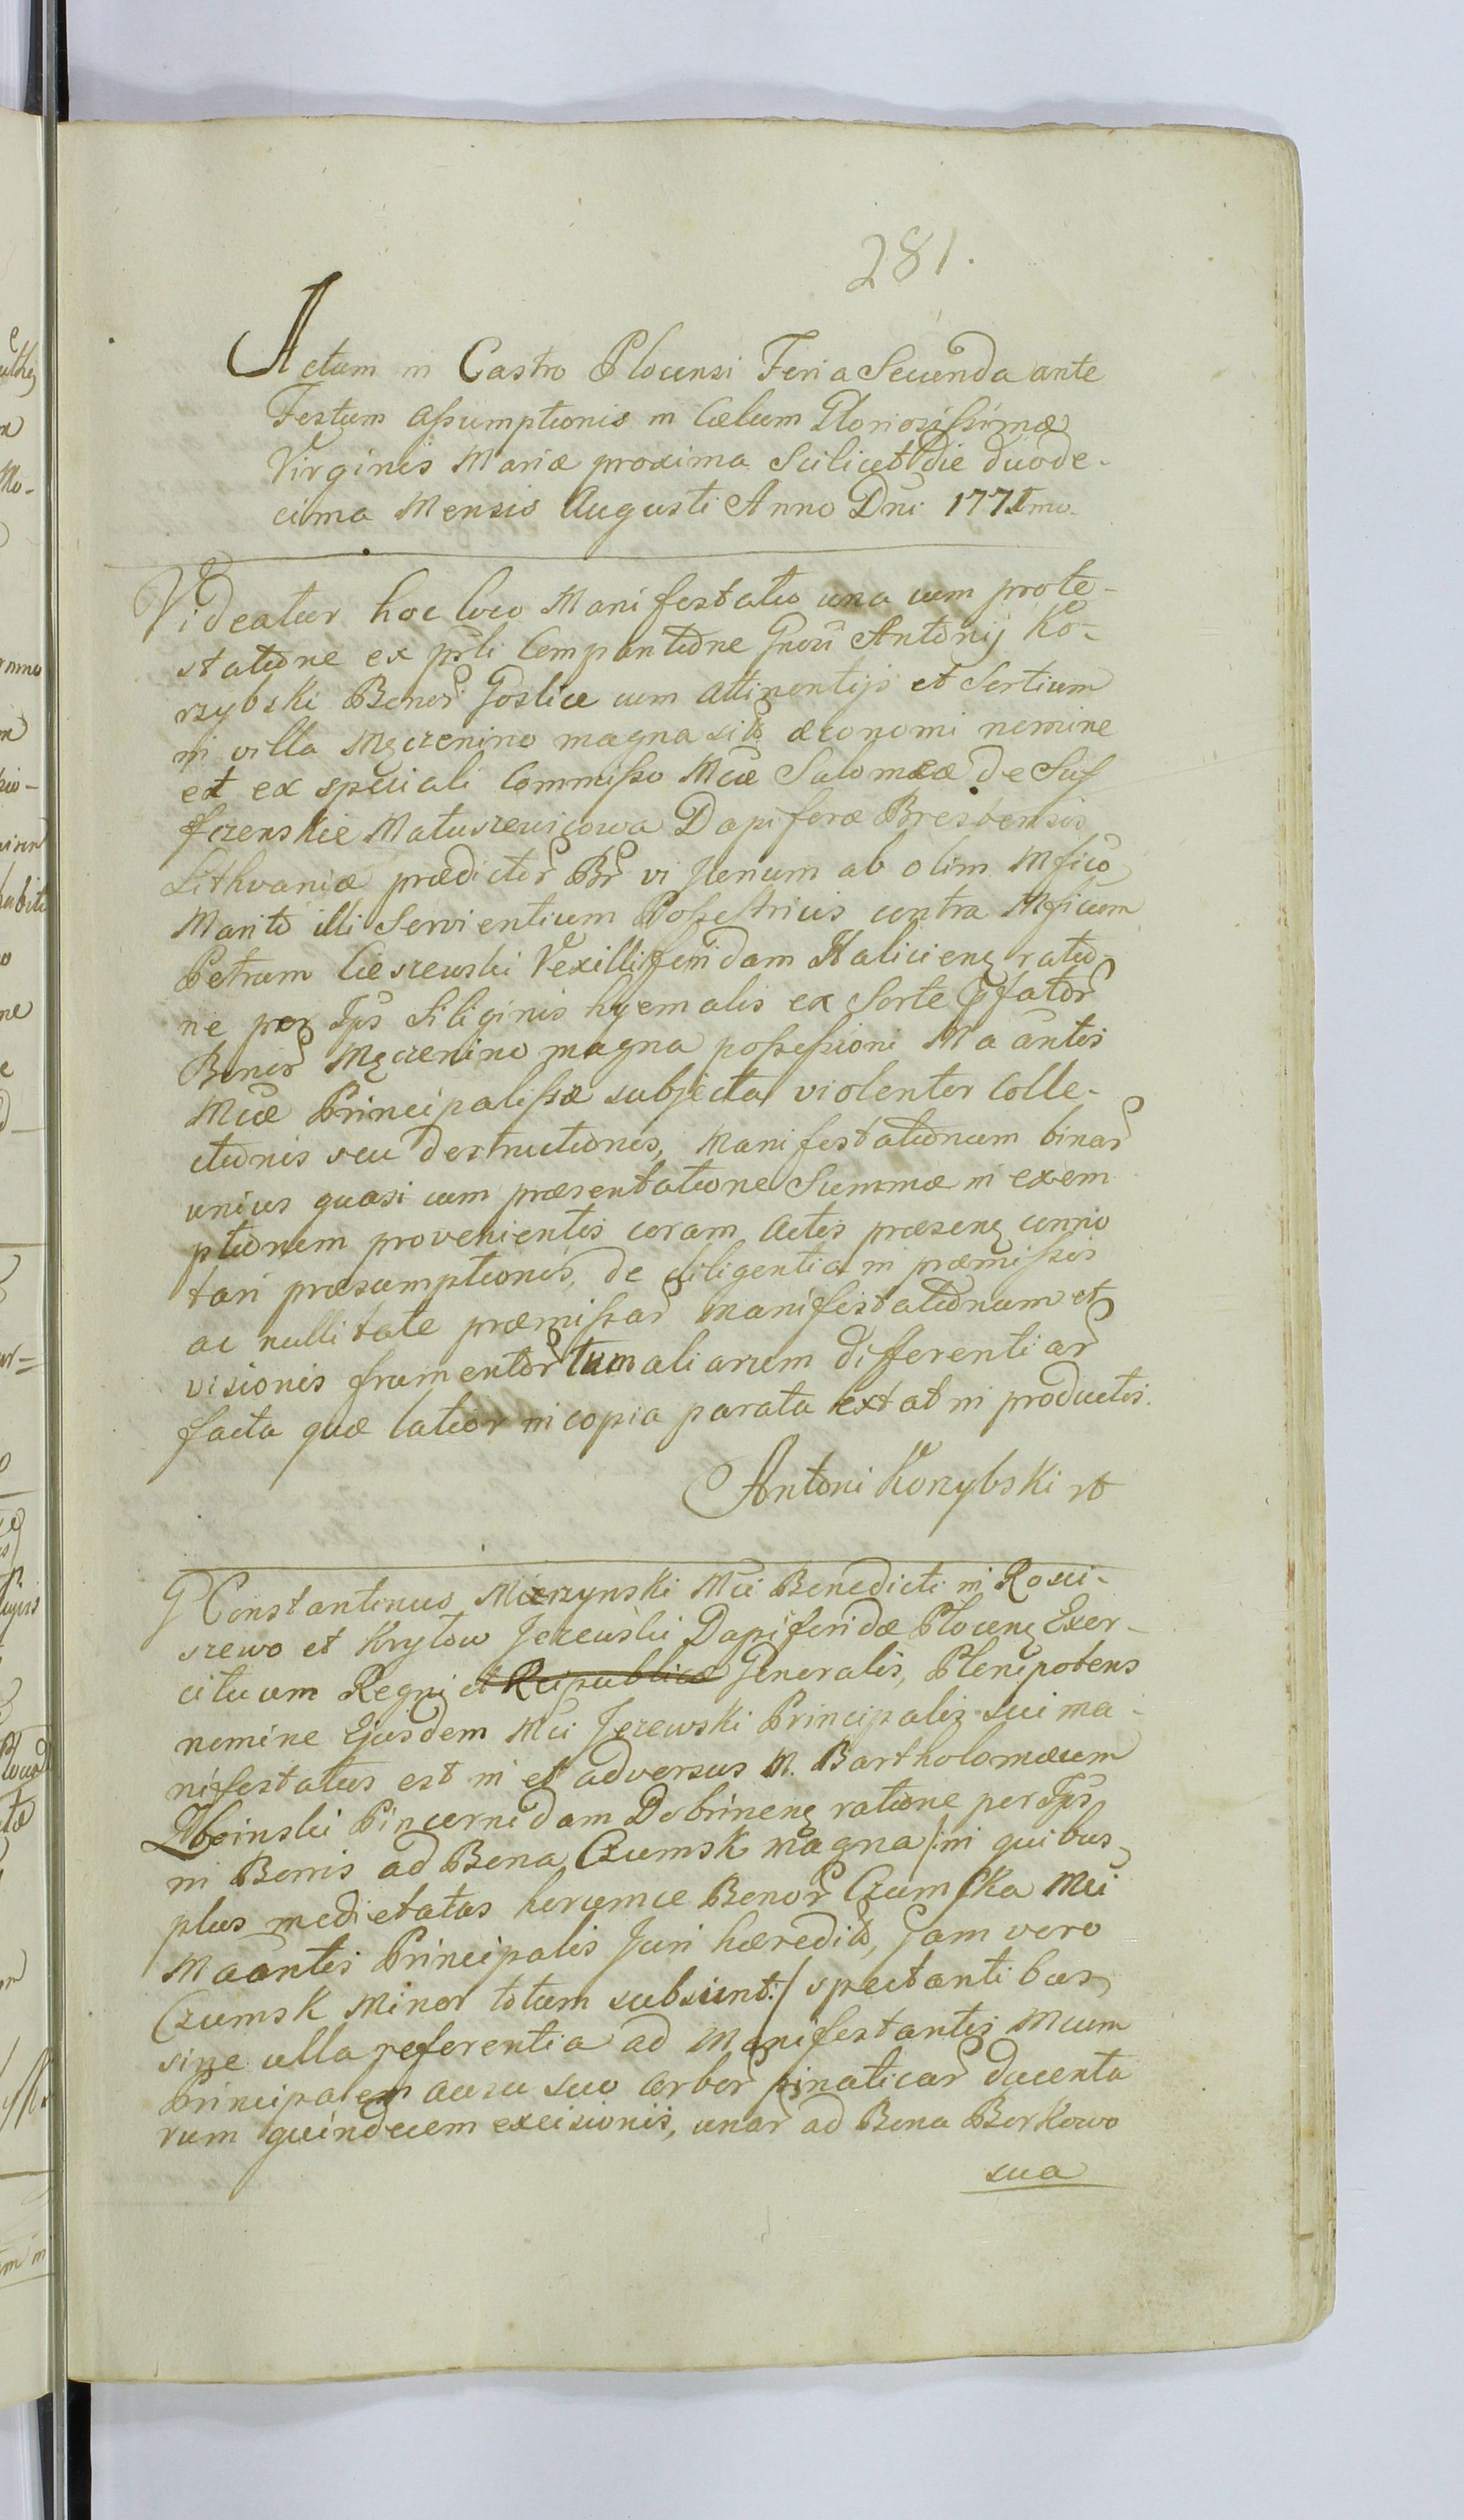 281.
Actum in Castro Plocensi Feria Secunda ante
Festum Assumptionis in Cælum Gloriosissimæ
Virginis Mariæ proxima Scilicet die duode-
cima Mensis Augusti Anno Dni 1771mo.
Videatur hoc loco Manifestatio una cum prote-
statione ex prli Comparitione Gnosi Antonij Ko-
rzybski Bonor Goslice cum attinentijs et Sortium
in villa Męczenino magna sit œconomi nomine
et ex speciali Commisso Mcæ Salomeæ de Suf
fczenskie Matuszewicowa Dapiferæ Brestensis
Lithvaniæ prædictor Br vi Jurium ab olim Mfico
Marito illi Servientium Possestricis contra Mficum
Petrum Cieszewski Vexilliferidam Haliciens ratio-
ne per Ips Siliginis hyemalis ex Sorte pfator
Bonor Męczenino magna possessioni Maantis
Mcæ Principalissæ subjecta violenter Colle-
ctionis seu destructionis, Manifestationum binar
unius quasi cum præsentatione Summæ in exem
ptionem provenientis coram Actis præsens conno
tari præsumptionis, de diligentia in præmissis
ac nullitate præmissar manifestationum et
visionis frumentor tum aliarum differentiar
facta quæ latior in copia parata extat in productis.
Antoni Korzybski
G Constantinus Mierzynski Mci Benedicti in Rosci-
szewo et Krylow Jezewski Dapiferidæ Plocens Exer-
cituum Regni et Reipublicæ Generalis, Plenipotens
nomine Ejusdem Mci Jezewski Principalis sui ma-
nifestatus est in et adversus M. Bartholomæum
Zboinski Pincernidam Dobrinens ratione per Ips
in Borris ad Bona Czumsk magna /: in quibus
plus medietatas horumce Bonor Czumska Mci
Maantis Principalis Juri hæredit, Jam vero
Czumsk Minor totum subsunt :/ spectantibus
sine ulla referentia ad Manifestantis Mcum
Principalem ausu suo arbor pinaticar ducenta
rum quindecem excisionis, unar ad Bona Borkowo
sua